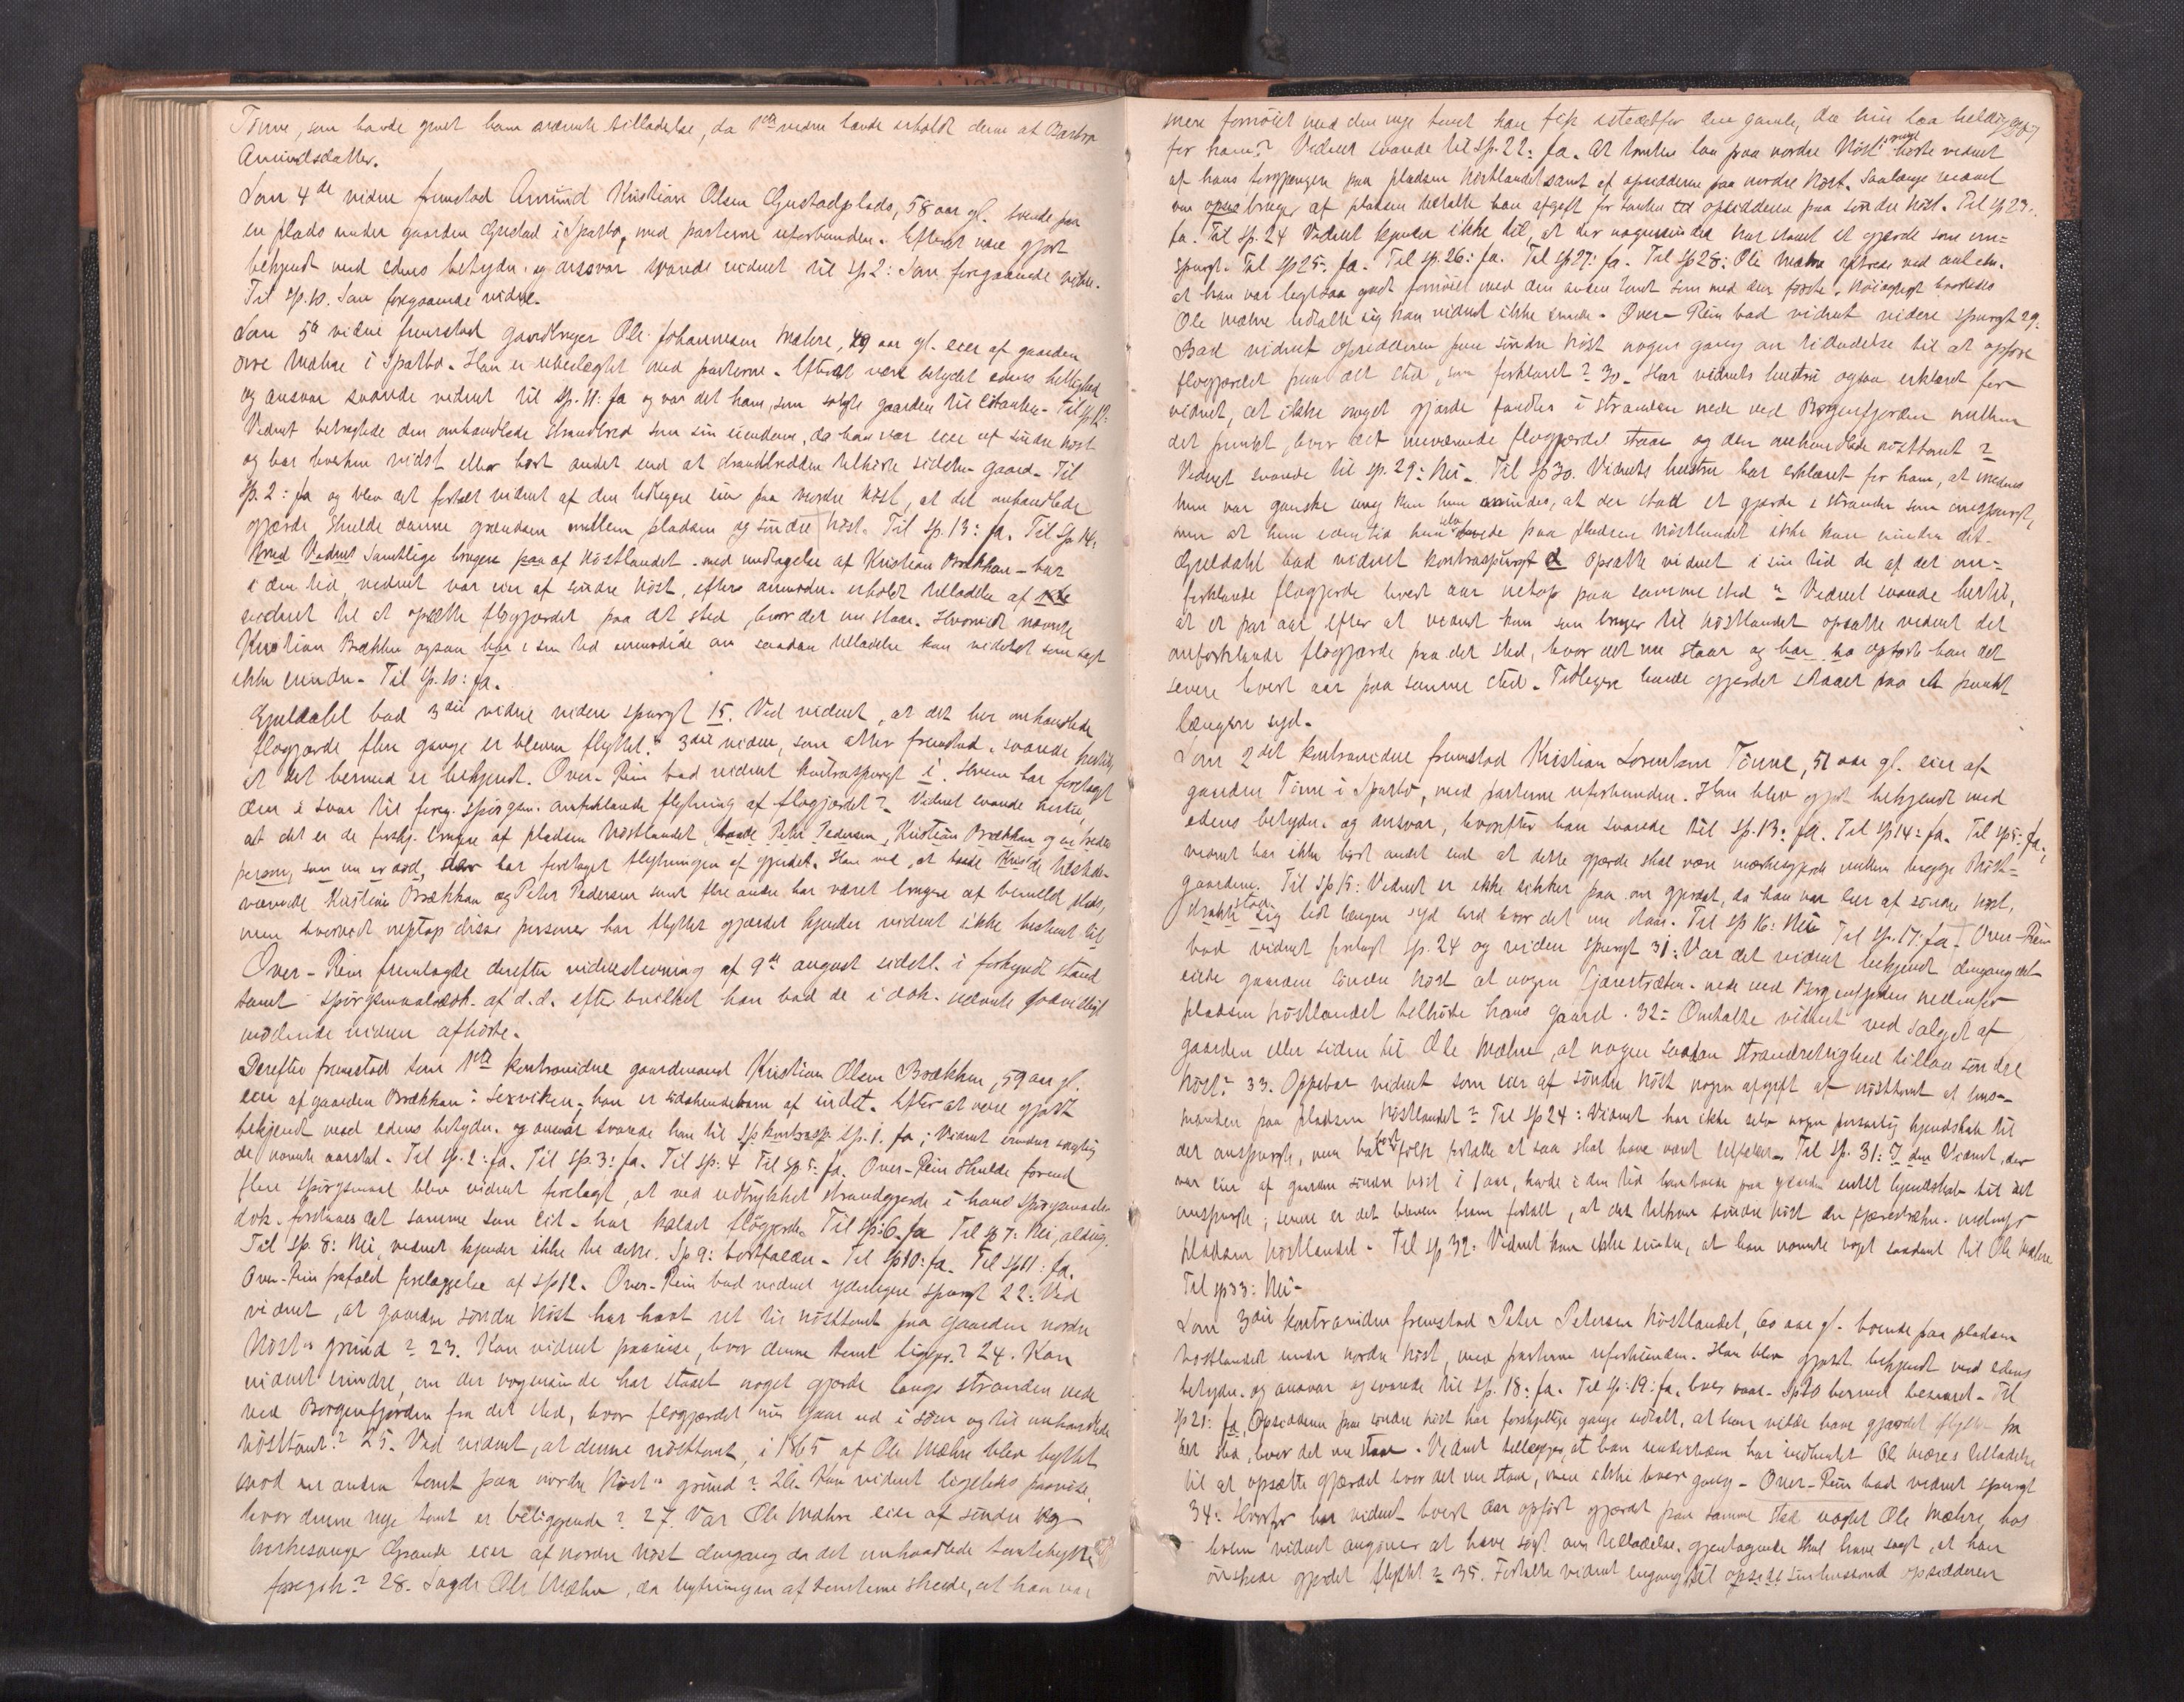 Tønne, som havde givet ham nævnte tilladelse, da 1ste vidne havde erholdt denne af Barbra
Amundsdatter.
Som 4de vidne fremstod Amund Kristian Olsen Gjustadplads, 58 aar gl. boende paa
en plads under gaarden Gjustad i Sparbo, med parterne uforbunden. Efter at være gjort
bekjendt med edens betydn. og ansvar svarede vidnet til sp 2: Som foregaaende vidne.
Til sp. 10. Som foregaaende vidne.
Som 5te vidne fremstod gaardbruger Ole Johannesen Mæhre, 49 aar gl. eier af gaarden
øvre Mæhre i Sparbo. Han er ubeslægtet med parterne. Efter at være betydet edens hellighed
og ansvar svarede vidnet til sp. 11: Ja og var det ham, som solgte gaarden til Citanten. Til sp 12:
Vidnet betragtede den omhandlede strandbred som sin eiendom, da han var eier af søndre Høst
og har hverken vidst eller hørt andet end at strandbredden tilhørte sidstn. gaard. Til
sp. 2: Ja og blev det fortalt vidnet af den tidligere eier paa nordre Høst, at det omhandlede
gjærde skulde danne grændsen mellem pladsen og søndre Høst. Til sp. 13: Ja. Til Sp. 14:
Vidnet Samtlige brugere paa af Høstlandet med undtagelse af Kristian Brækkan – har
i den tid, vidnet var eier af søndre Høst, efter anmodn. erholdt tilladelse af
vidnet til at opsætte fløgjærdet paa det sted, hvor det nu staar. Hvorvidt nævnte
Kristian Brækkan ogsaa har i sin tid anmodede om saadan tilladelse kan vidnet som sagt
ikke erindre. Til sp. 10: Ja.
Gjeldahl bad 3die vidne videre spurgt 15. Ved vidnet, at det her omhandlede
fløgjærde flere gange er bleven flyttet? 3die vidne, som atter fremstod, svarede hertil,
at det bemed er bekjendt. Over-Rein bad vidnet kontraspurgt i. Hvem har foretaget
den i svar til foreg. spørgsm. omforklarede flytning af fløgjærdet? Vidnet svarede hertil,
at det er de forskj. brugere af pladsen Høstlandet, baade Peter Pedersen, Kristian Brækkan og en tredie
person, som nu er død, der har foretaget flytningen af gjærdet. Han ved, at baade de tilstede-
værende Kristian Brækkan og Peter Pedersen samt flere andre har været brugere af bemeldt plads,
men hvorvidt netop disse personer har flyttet gjærdet kjender vidnet ikke bestemt til.
Over-Rein fremlagde derefter vidnestevning af 9de august sidstl. i forkyndt stand
samt spørgsmaalsdok. af d. d. efter hvilket han bad de i dok. nævnte godvilligt
mødende vidner afhørte.
Derefter fremstod som 1ste kontravidne gaardmand Kristian Olsen Brækkan, 59 aar gl.
eier af gaarden Brækkan i Leksviken, han er sødskendebarn af indst. Efter at være gjort
bekjendt med edens betydn. og ansvar svarede han til kontrasp. sp. 1. Ja; Vidnet erindrer nøiagtig
de nævnte aarstal. Til sp. 2: Ja. Til sp. 3: Ja. Til sp: 4 Til sp. 5: Ja. Over-Rein skulde forend
flere spørgsmaal blev vidnet forelagt, at ved udtrykket strandgjærde i hans spørgsmaals-
dok. forstaaes det samme som cit. har kaldet fløgjærde. Til sp: 6. Ja Til sp 7: Nei, aldrig.
Til sp. 8: Nei, vidnet kjender ikke til dette. Sp 9: bortfalder. Til sp 10: Ja. Til sp 11: Ja.
Over-Rein frafaldt forelæggelse af sp 12. Over-Rein bad vidnet yderligere spurgt 22: Ved
vidnet, at gaarden søndre Høst har havt ret til nøsttomt paa gaarden nordre
Høst's grund? 23. Kan vidnet paavise, hvor denne tomt ligger? 24. Kan
vidnet erindre, om der nogensinde har staaet noget gjærde langs stranden nede
ved Borgenfjorden fra det sted, hvor fløgjærdet nu gaar ud i søen og til omhandlede
nøsttomt? 25. Ved vidnet, at denne nøsttomt, i 1865 af Ole Mæhre blev byttet
mod en anden tomt paa nordre Høst's grund? 26. Kan vidnet ligeledes paavise,
hvor denne nye tomt er beliggende? 27. Var Ole Mæhre eier af søndre og
kirkesanger Grande eier af nordre Høst dengang da det omhandlede tomtebytte
foregik? 28. Sagde Ole Mæhre, da bytningen af tomterne skede, at han var
mere fornøiet med den nye tomt han fik istedetfor den gamle, da hin laa heldigere
for ham? Vidnet svarede til sp. 22: Ja. At tomten laa paa nordre Høst's grund hørte vidnet
af hans forgjænger paa pladsen Høstlandet samt af opsidderne paa nordre Høst. Saalænge vidnet
var opsi bruger af pladsen betalte han afgift for tomten til opsidderen paa søndre Høst. Til sp 23:
Ja. Til Sp. 24 Vidnet kjender ikke til, at der nogensinde har staaet et gjærde som om-
spurgt. Til sp 25: Ja. Til sp. 26: Ja. Til sp 27: Ja. Til sp 28: Ole Mæhre ytrede ved anledn.
at han var ligesaa godt fornøiet med den anden tomt som med den første. Nøiagtigt hvorledes
Ole Mæhre udtalte sig kan vidnet ikke erindre. Over-Rein bad vidnet videre spurgt 29.
Bad vidnet opsidderen paa søndre Høst nogen gang om tilladelse til at opføre
fløgjærdet paa det sted, som forklaret? 30. Har vidnets hustru ogsaa erklæret for
vidnet, at ikke noget gjærde fandtes i stranden nede ved Borgenfjorden mellem
det punkt, hvor det nuværende fløgjærdet staar og den omhandlede nøsttomt?
Vidnet svarede til sp. 29: Nei. Til Sp 30. Vidnets hustru har erklæret for ham, at medens
hun var ganske ung kan hun erindre, at der stod et gjærde i stranden som omspurgt,
men at hun i den tid hun selv boede paa pladsen Høstlandet ikke kan erindre det.
Gjeldahl bad vidnet kontraspurgt Opsatte vidnet i sin tid de af det om-
forklarede fløgjærde hvert aar netop paa samme sted? Vidnet svarede hertil,
at et par aar efter at vidnet kom som bruger til Høstlandet opsatte vidnet det
omforklarede fløgjærde paa det sted, hvor det nu staar og opførte han det
senere hvert aar paa samme sted. Tidligere havde gjærdet staaet paa et punkt
længere syd.
Som 2det kontravidne fremstod Kristian Lorentsen Tønne, 51 aar gl. eier af
gaarden Tønne i Sparbo, med parterne uforbunden. Han blev gjort bekjendt med
edens betydn. og ansvar, hvorefter han svarede til sp. 13: Ja. Til sp 14: Ja. Til sp 5: Ja;
vidnet har ikke hørt andet end at dette gjærde skal være mærkesgjærde mellem begge Høst-
gaardene. Til Sp 15: Vidnet er ikke sikker paa om gjærdet, da han var eier af søndre Høst,
strakte sig stod lidt længere syd end hvor det nu staar. Til sp 16: Nei Til sp. 17: Ja. Over-Rein
bad vidnet forelagt Sp. 24 og videre spurgt 31: Var det vidnet bekjendt dengang det
eiede gaarden søndre Høst at nogen fjærestrækn. nede ved Borgenfjorden nedenfor
pladsen Høstlandet tilhørte hans gaard. 32: Omtalte vidnet ved salget af
gaarden eller siden til Ole Mæhre, at nogen saadan strandrettighed tillaa søndre
Høst? 33. Oppebar vidnet som eier af søndre Høst nogen afgift af nøsttomt af hus-
manden paa pladsen Høstlandet? Til Sp 24: Vidnet har ikke selv nogen personlig kjendskab til
det omspurgte, men har hørt folk fortalte at saa skal have været tilfælde. Til Sp. 31: I den Vidnet, der
var eier af gaarden søndre Høst i 1 aar, havde i den tid han boede paa gaarden intet kjendskab til det
omspurgte; senere er det bleven ham fortalt, at det tilhører søndre Høst den fjærestrækn. nedenfor
pladsen Høstlandet. Til sp 32: Vidnet kan ikke erindre, at han nævnte noget saadant til Ole Mæhre
Til sp 33: Nei.
Som 3die kontravidne fremstod Peter Petersen Høstlandet, 60 aar gl. boende paa pladsen
Høstlandet under nordre Høst, med parterne uforbunden. Han blev gjort bekjendt med edens
betydn. og ansvar og svarede til sp. 18: Ja. Til Sp: 19: Ja, hver vaar. Sp 20 hermed besvaret. Til
Sp 21: Ja, Opsidderen paa søndre Høst har forskjellige gange udtalt, at han vilde have gjærdet flyttet fra
det sted, hvor det nu staar. Vidnet tillægger, at han undertiden har indhentet Ole Mæres tilladelse
til at opsætte gjærdet hvor det nu staar, men ikke hver gang. Over-Rein bad vidnet spurgt
34: Hvorfor har vidnet hvert aar opført gjærdet paa samme sted uagtet Ole Mæhre, hos
hvem vidnet angiver at have søgt om tilladelse, gjentagende skal have sagt, at han
ønskede gjærdet flyttet? 35. Fortalte vidnet engang til opsidd opsidderen